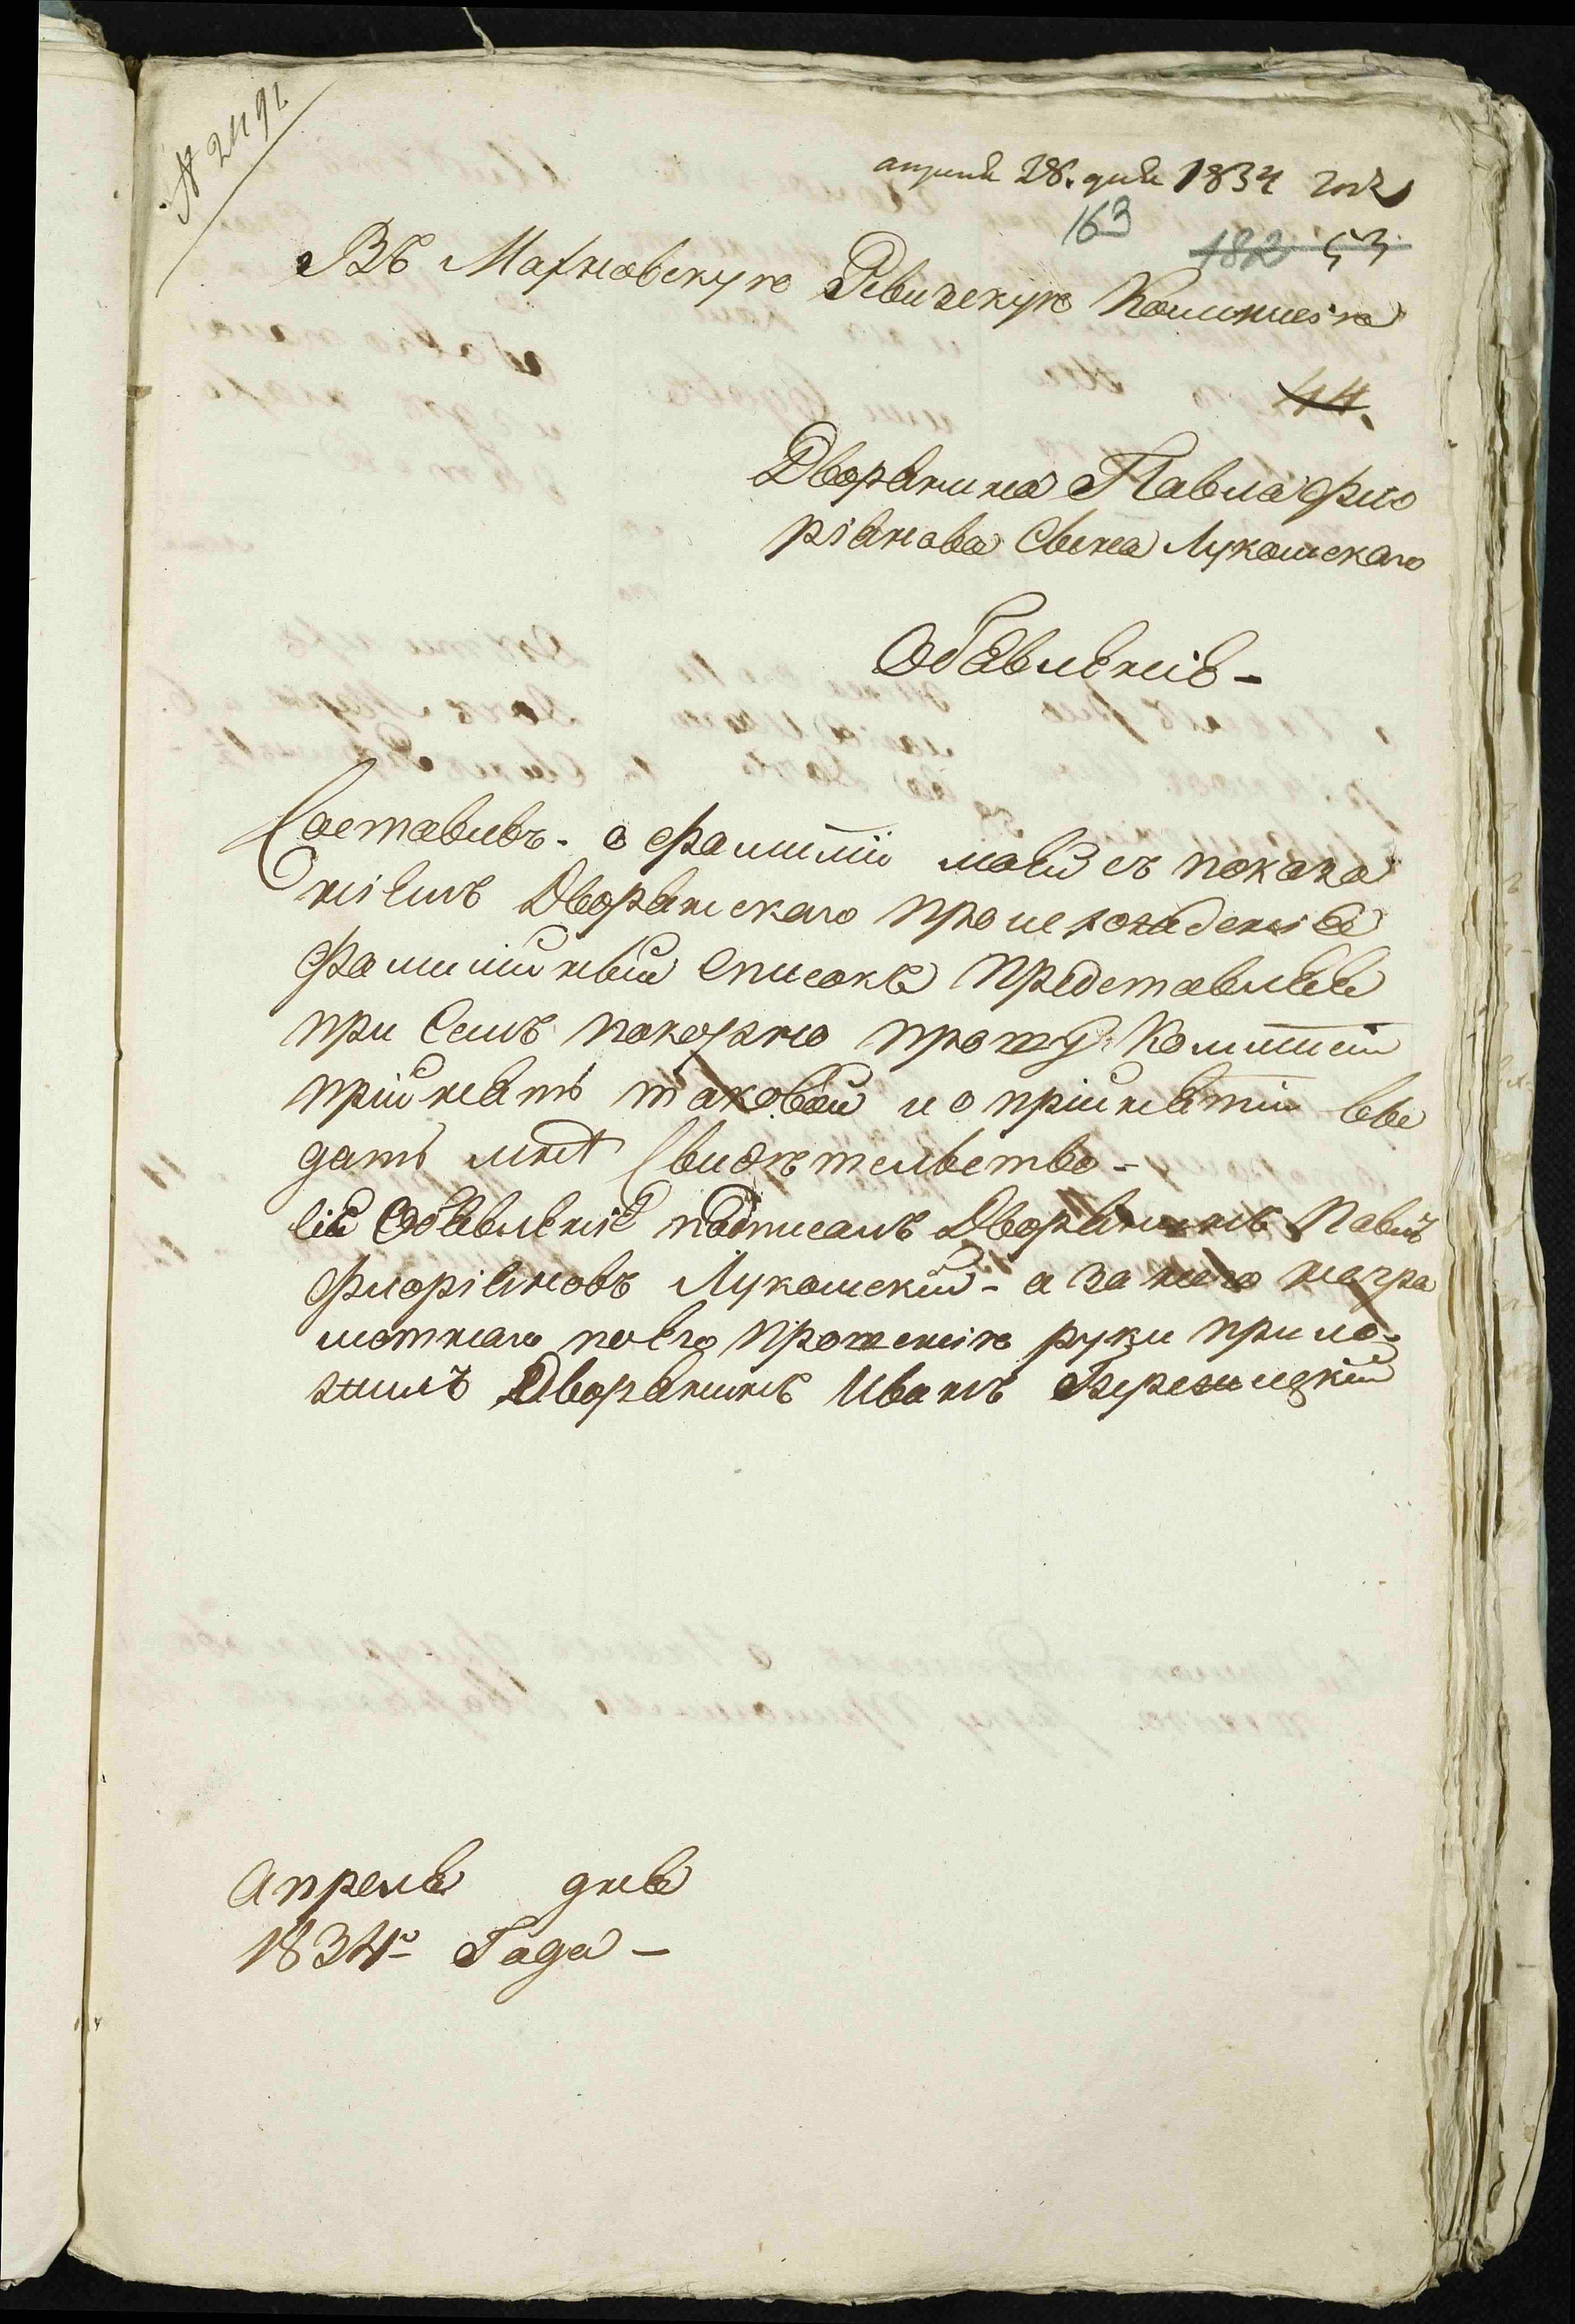 № 2491
апреля 28. дня 1834 года
163
182 53
Въ Махновскую Ревизскую Коммисію
44.
Дворянина Павла Фло
ріянова Сына Лукомскаго
Обявленіе -
Составивъ - о фамиліи моей съ показа
ніемъ Дворянскаго происхожденія
Фамилійный Списокъ представляя
при Семъ покорно прошу Коммисіи
прійнять таковый и о прійнятіи ея
дать мнѣ Свидѣтельство -
Сіе Обявленіе подписалъ Дворянинъ Павелъ
Флоріяновъ Лукомскій - а за него негра
мотнаго по его прошенію руки прило-
жилъ Дворянинъ Иванъ
Апреля дня
1834го Года -